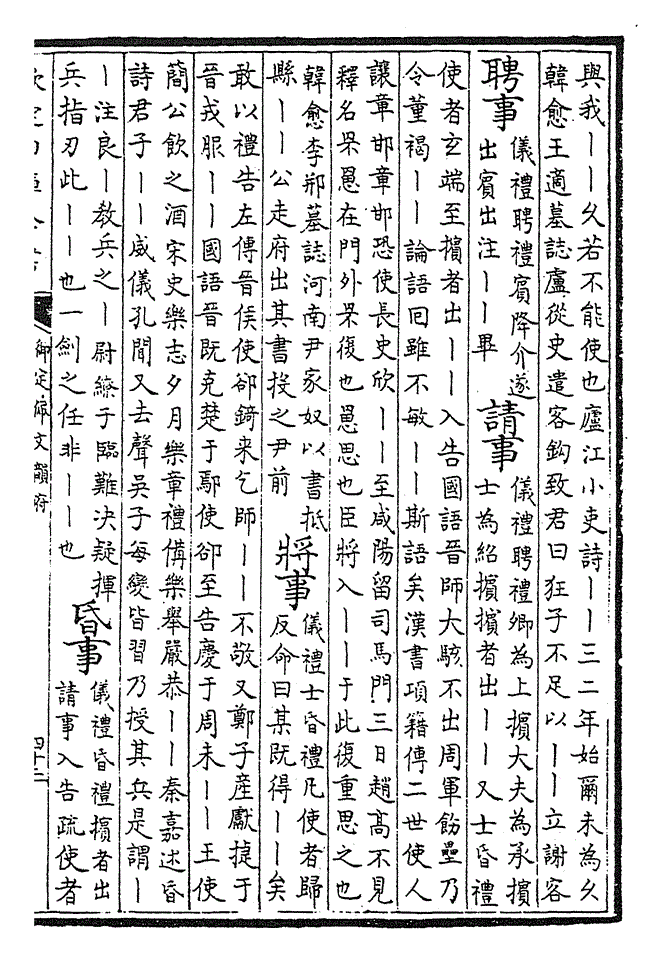 與我丨丨久若不能使也廬江小吏詩丨丨三二年始爾未為久
韓愈王適墓誌盧從史遣客鈎致君曰狂子不足以丨丨立謝客
聘事
儀禮聘禮賓降介遂
出賓出注丨丨畢
請事
儀禮聘禮卿為上擯大夫為承擯
士為紹擯擯者出丨丨又士昏禮
使者玄端至擯者出丨丨入告國語晉師大駭不出周軍飭壘乃
令董褐丨丨論語回雖不敏丨丨斯語矣漢書項籍傳二世使人
讓章邯章邯恐使長史欣丨丨至咸陽留司馬門三日趙高不見
釋名罘罳在門外罘復也罳思也臣將入丨丨于此復重思之也
韓愈李墓誌河南尹家奴以書抵
縣丨丨公走府出其書投之尹前
將事
儀禮士昏禮凡使者歸
反命曰某既得丨丨矣
敢以禮告左傳晉侯使郤錡来乞師丨丨不敬又鄭子産獻捷于
晉戎服丨丨國語晉既克楚于鄢使郤至告慶于周未丨丨王使
簡公飲之酒宋史樂志夕月樂章禮備樂舉嚴恭丨丨秦嘉述昏
詩君子丨丨威儀孔閑又去聲吳子每變皆習乃授其兵是謂丨
丨注良丨教兵之丨尉繚子臨難決疑揮
兵指刃此丨丨也一劍之任非丨丨也
昏事
儀禮昏禮擯者出
請事入告疏使者
御定佩文韻府
四十二